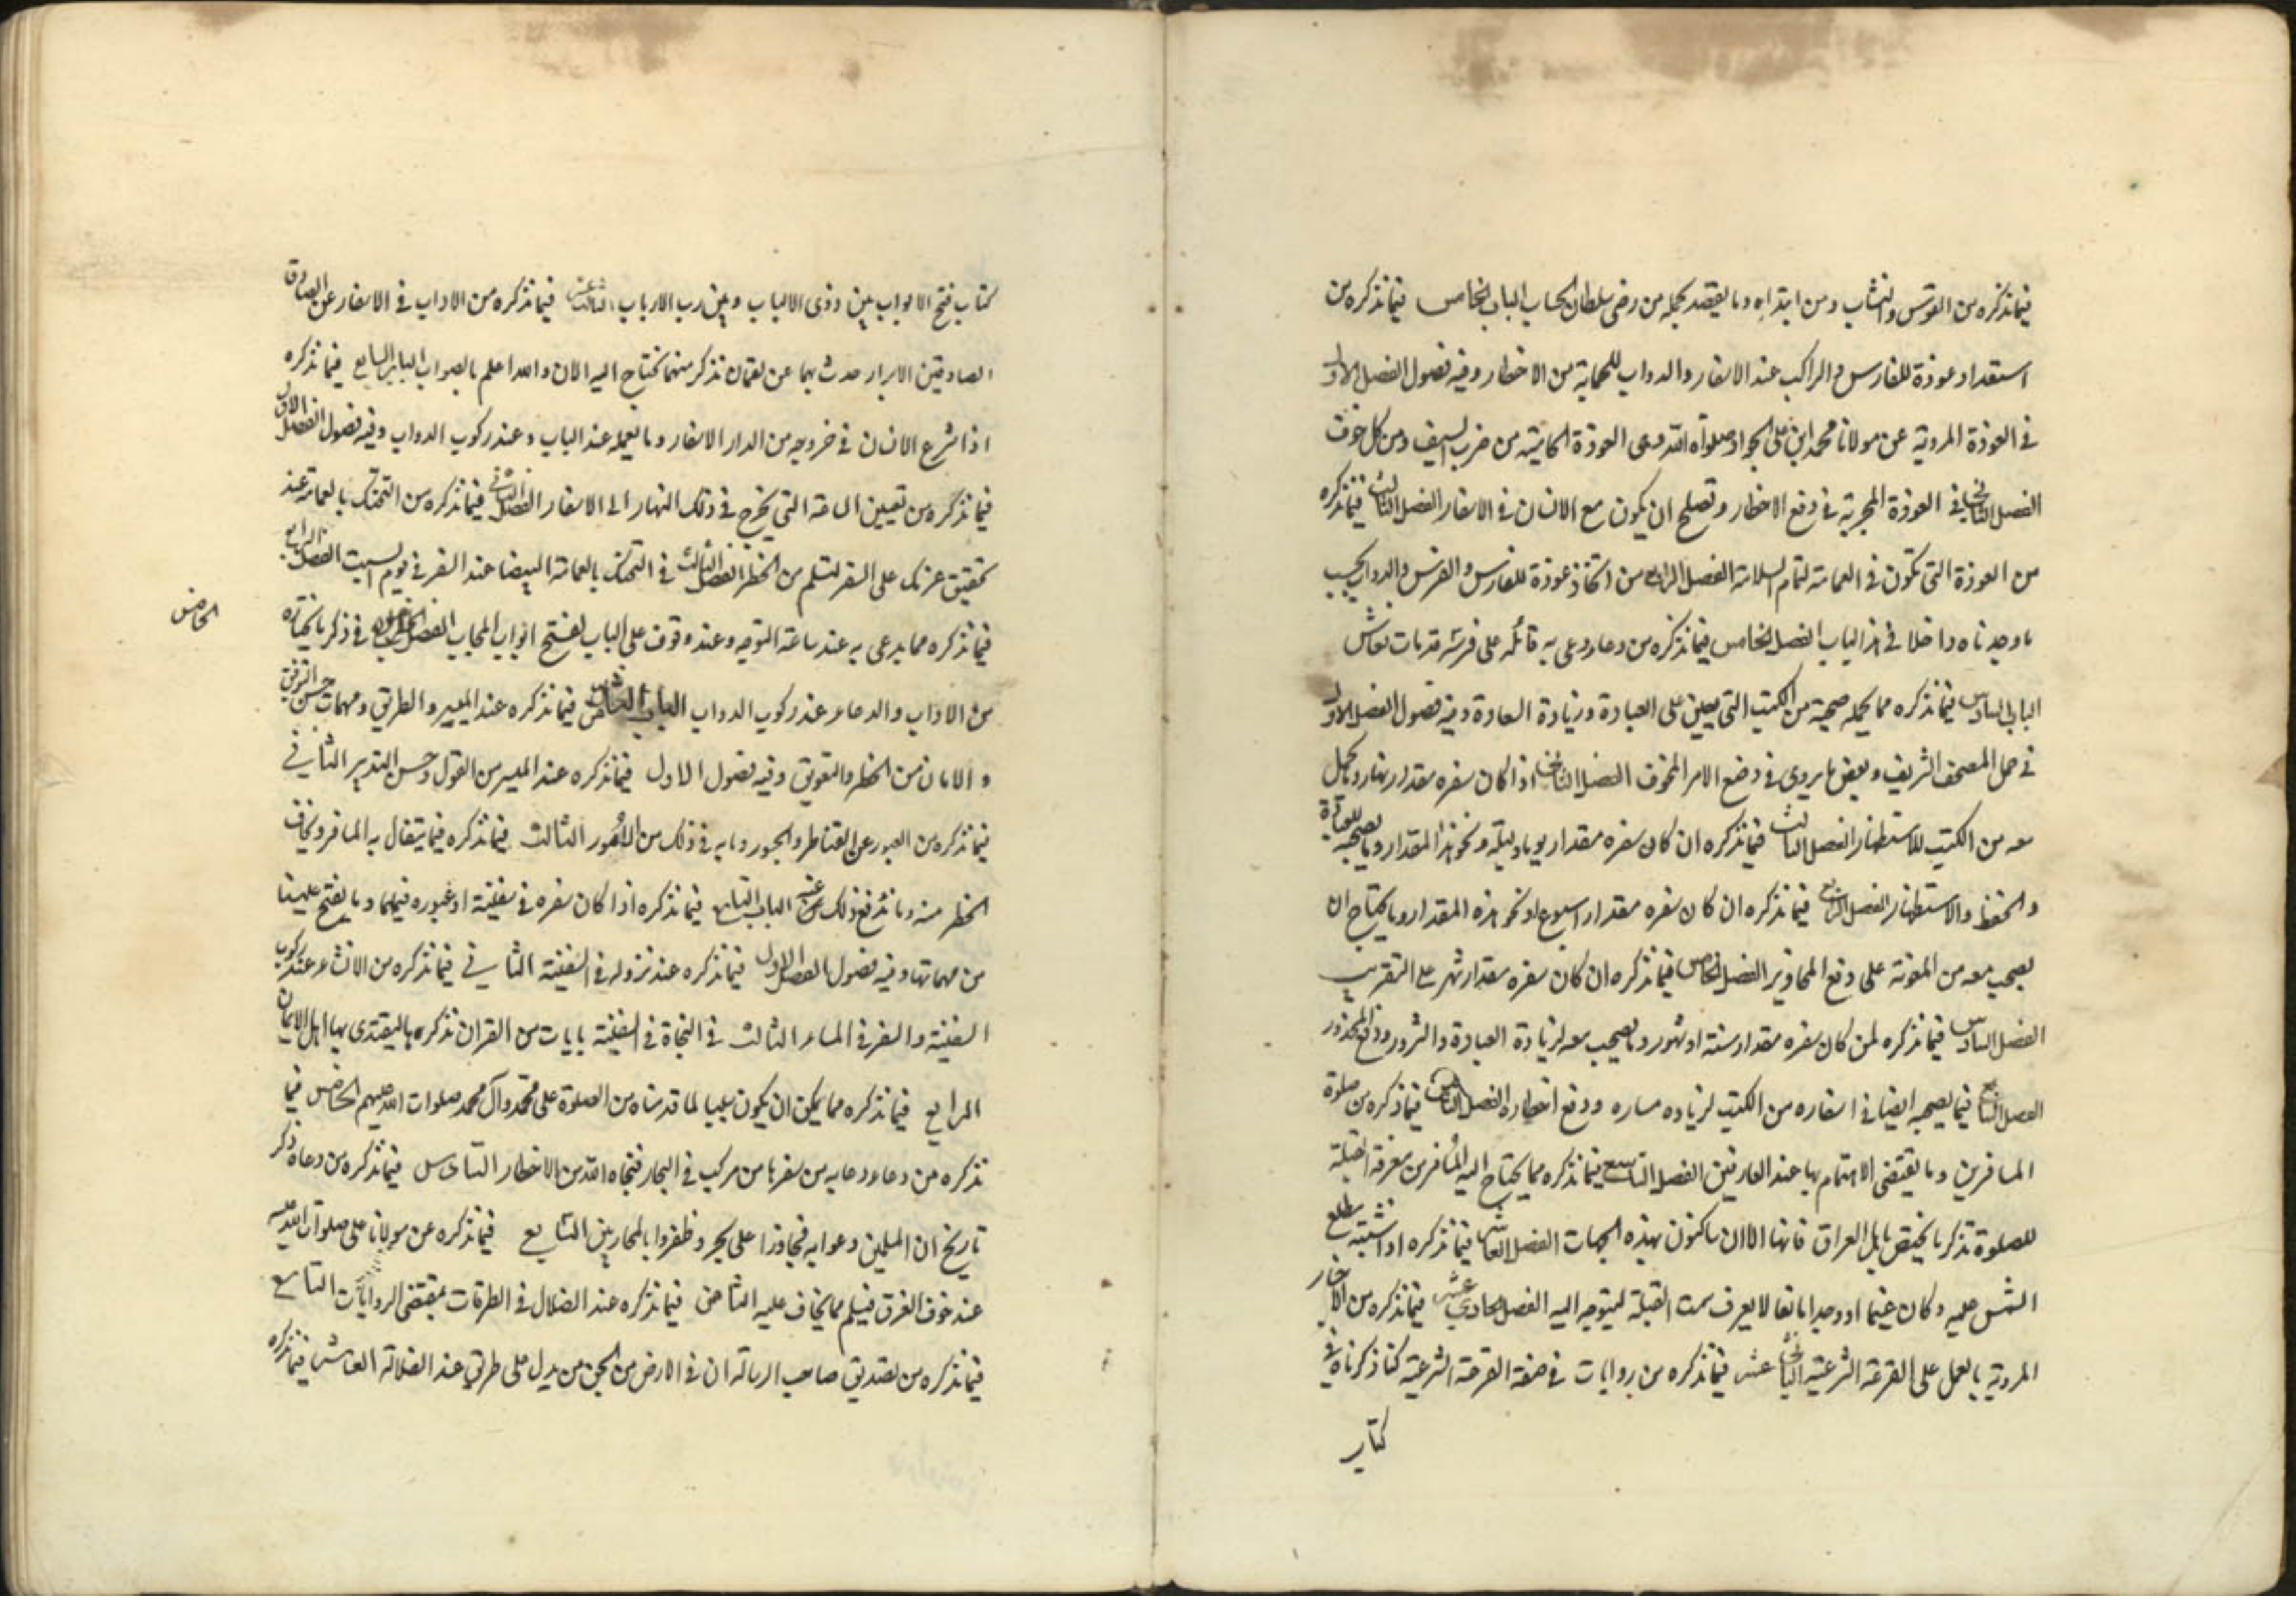 فيما نذكره من القوس والنشاب ومن ابتداه وما يقصد بحمله من رضى سلطان الحساب الباب الخامس فيما نذكره من
استعداد عوذة للفارس والراكب عند الاسفار والدواب للحماية من الاخطار وفيه فصول الفصل الاول
في العوذة المروية عن مولانا محمد ابن على الجواد صلوات الله وهى العوذة الحامية من ضرب السيف ومن كل خوف
الفصل الثاني في العوذة المجربة في دفع الاخطار وتصلح ان يكون مع الانسان في الاسفار الفصل الثالث فيما نذكره
من العوذة التي تكون في العمامة لتمام السلامة الفصل الرابع من اتخاذ عوذة للفارس والفرس والدواب بحسب
ما وجدناه داخلا في هذا الباب الفصل الخامس فيما نذكره من دعاء دعى به قائله على فرسه قد مات فعاش
الباب السادس فيما نذكره مما يحمله صحبة من الكتب التي يعين على العبادة وزيادة السعادة وفيه فصول الفصل الاول
في حمل المصحف الشريف وبعض ما يروى في دفع الامر المخوف الفصل الثاني اذا كان سفره مقدار نهار وما يحمل
معه من الكتب للاستظهار الفصل الثالث فيما نذكره ان كان سفره مقدار يوم وليلة ونحو هذا المقدار وما يصحبه للعبادة
والحفظ والاستظهار الفصل الرابع فيما نذكره ان كان سفره مقدار اسبوع او نحو هذه المقدار وما يحتاج ان
يصحب معه من المعونة على دفع المحاذير الفصل الخامس فيما نذكره ان كان سفره مقدار شهر على التقريب
الفصل السادس فيما نذكره لمن كان سفره مقدار سنة او شهور وما يصحب معه لزيادة العبادة والسرور ودفع المحذور
الفصل السابع فيما يصحبه ايضا في اسفاره من الكتب لزياده مساره ودفع اخطاره الفصل الثامن فيما نذكره من صلوة
المسافرين وما يقتضى الاهتمام بها عند العارفين الفصل التاسع فيما نذكره مما يحتاج اليه المسافر من معرفة القبلة
للصلوة نذكر ما يختص باهل العراق فاننا الان ساكنون بهذه الجهات الفصل العاشر فيما نذكره اذا اشتبه مطلع
الشمس عليه وكان غيما او وجد مانعا لا يعرف سمت القبلة ليتوجه اليه الفصل الحادي عشر فيما نذكره من الاخبار
المروية بالعمل على القرعة الشرعية الثاني عشر فيما نذكره من روايات في صفة القرعة الشرعية كنا ذكرناه في
كتاب
كتاب فتح الابواب بين ذوى الالباب وبين رب الارباب الثالث عشر فيما نذكره من الاداب في الاسفار عن الصادق
الصادقين الابرار حدث بهما عن لقمان نذكر منهما يحتاج اليه الان والله اعلم بالصواب الباب السابع فيما نذكره
اذا شرع الانسان في خروجه من الدار الاسفار وما يعمله عند الباب وعند ركوب الدواب وفيه فصول الفصل الاول
فيما نذكره من تعيين الساعة التي يخرج في ذلك النهار الى الاسفار الفصل الثاني فيما نذكره من التحنك بالعمامة عند
تحقيق عزمك على السفر لتسلم من الخطر الفصل الثالث في التحنك بالعمامة البيضا عند السفر في يوم السبت الفصل الرابع
فيما نذكره مما يدعى به عند ساعة التوجه وعند وقوف على الباب لفتح ابواب المحاب الفصل الخامس في ذكر ما نختاره
الخامس
من الاداب والدعاء عند ركوب الدواب الباب الثامن فيما نذكره عند المسير والطريق ومهمات حسن التوفيق
والامان من الخطر والتعويق وفيه فصول الاول فيما نذكره عند المسير من القول وحسن التدبير الثاني
فيما نذكره من العبور عن القناطر والجسور وما به في ذلك من الامور الثالث فيما نذكره فيما يتفال به المسافر ويخاف
الخطر منه وما ندفع ذلك عنه الباب التاسع فيما نذكره اذا كان سفره في سفينة او عبوره فيهما وما يفتح علينا
من مهماتها وفيه فصول الفصل الاول فيما نذكره عند نزوله في السفينة الثاني فيما نذكره من الانشاء عند ركوب
السفينة والسفر في الماء الثالث في النجاة في السفينة بايات من القران نذكرها ليقتدى بها اهل الايمان
الرابع فيما نذكره مما يمكن ان يكون سببا لما قدمناه من الصلوة على محمد وآل محمد صلوات الله عليهم الخامس فيما
نذكره من دعاء دعا به من سفرنا من مركب في البحار فنجاه الله من الاخطار السادس فيما نذكره من دعاه ذكر
تاريخ ان المسلمين دعوا به فجاوزا على بحر وظفروا بالمحاربين السابع فيما نذكره عن مولانا على صلوات الله عليه
عند خوف الغرق فيسلم مما يخاف عليه الثامن فيما نذكره عند الضلال في الطرقات بمقتضى الروايات التاسع
فيما نذكره من تصديق صاحب الرسالة ان في الارض من الجن من يدل على طريق عند الضلالة العاشر فيما نذكره